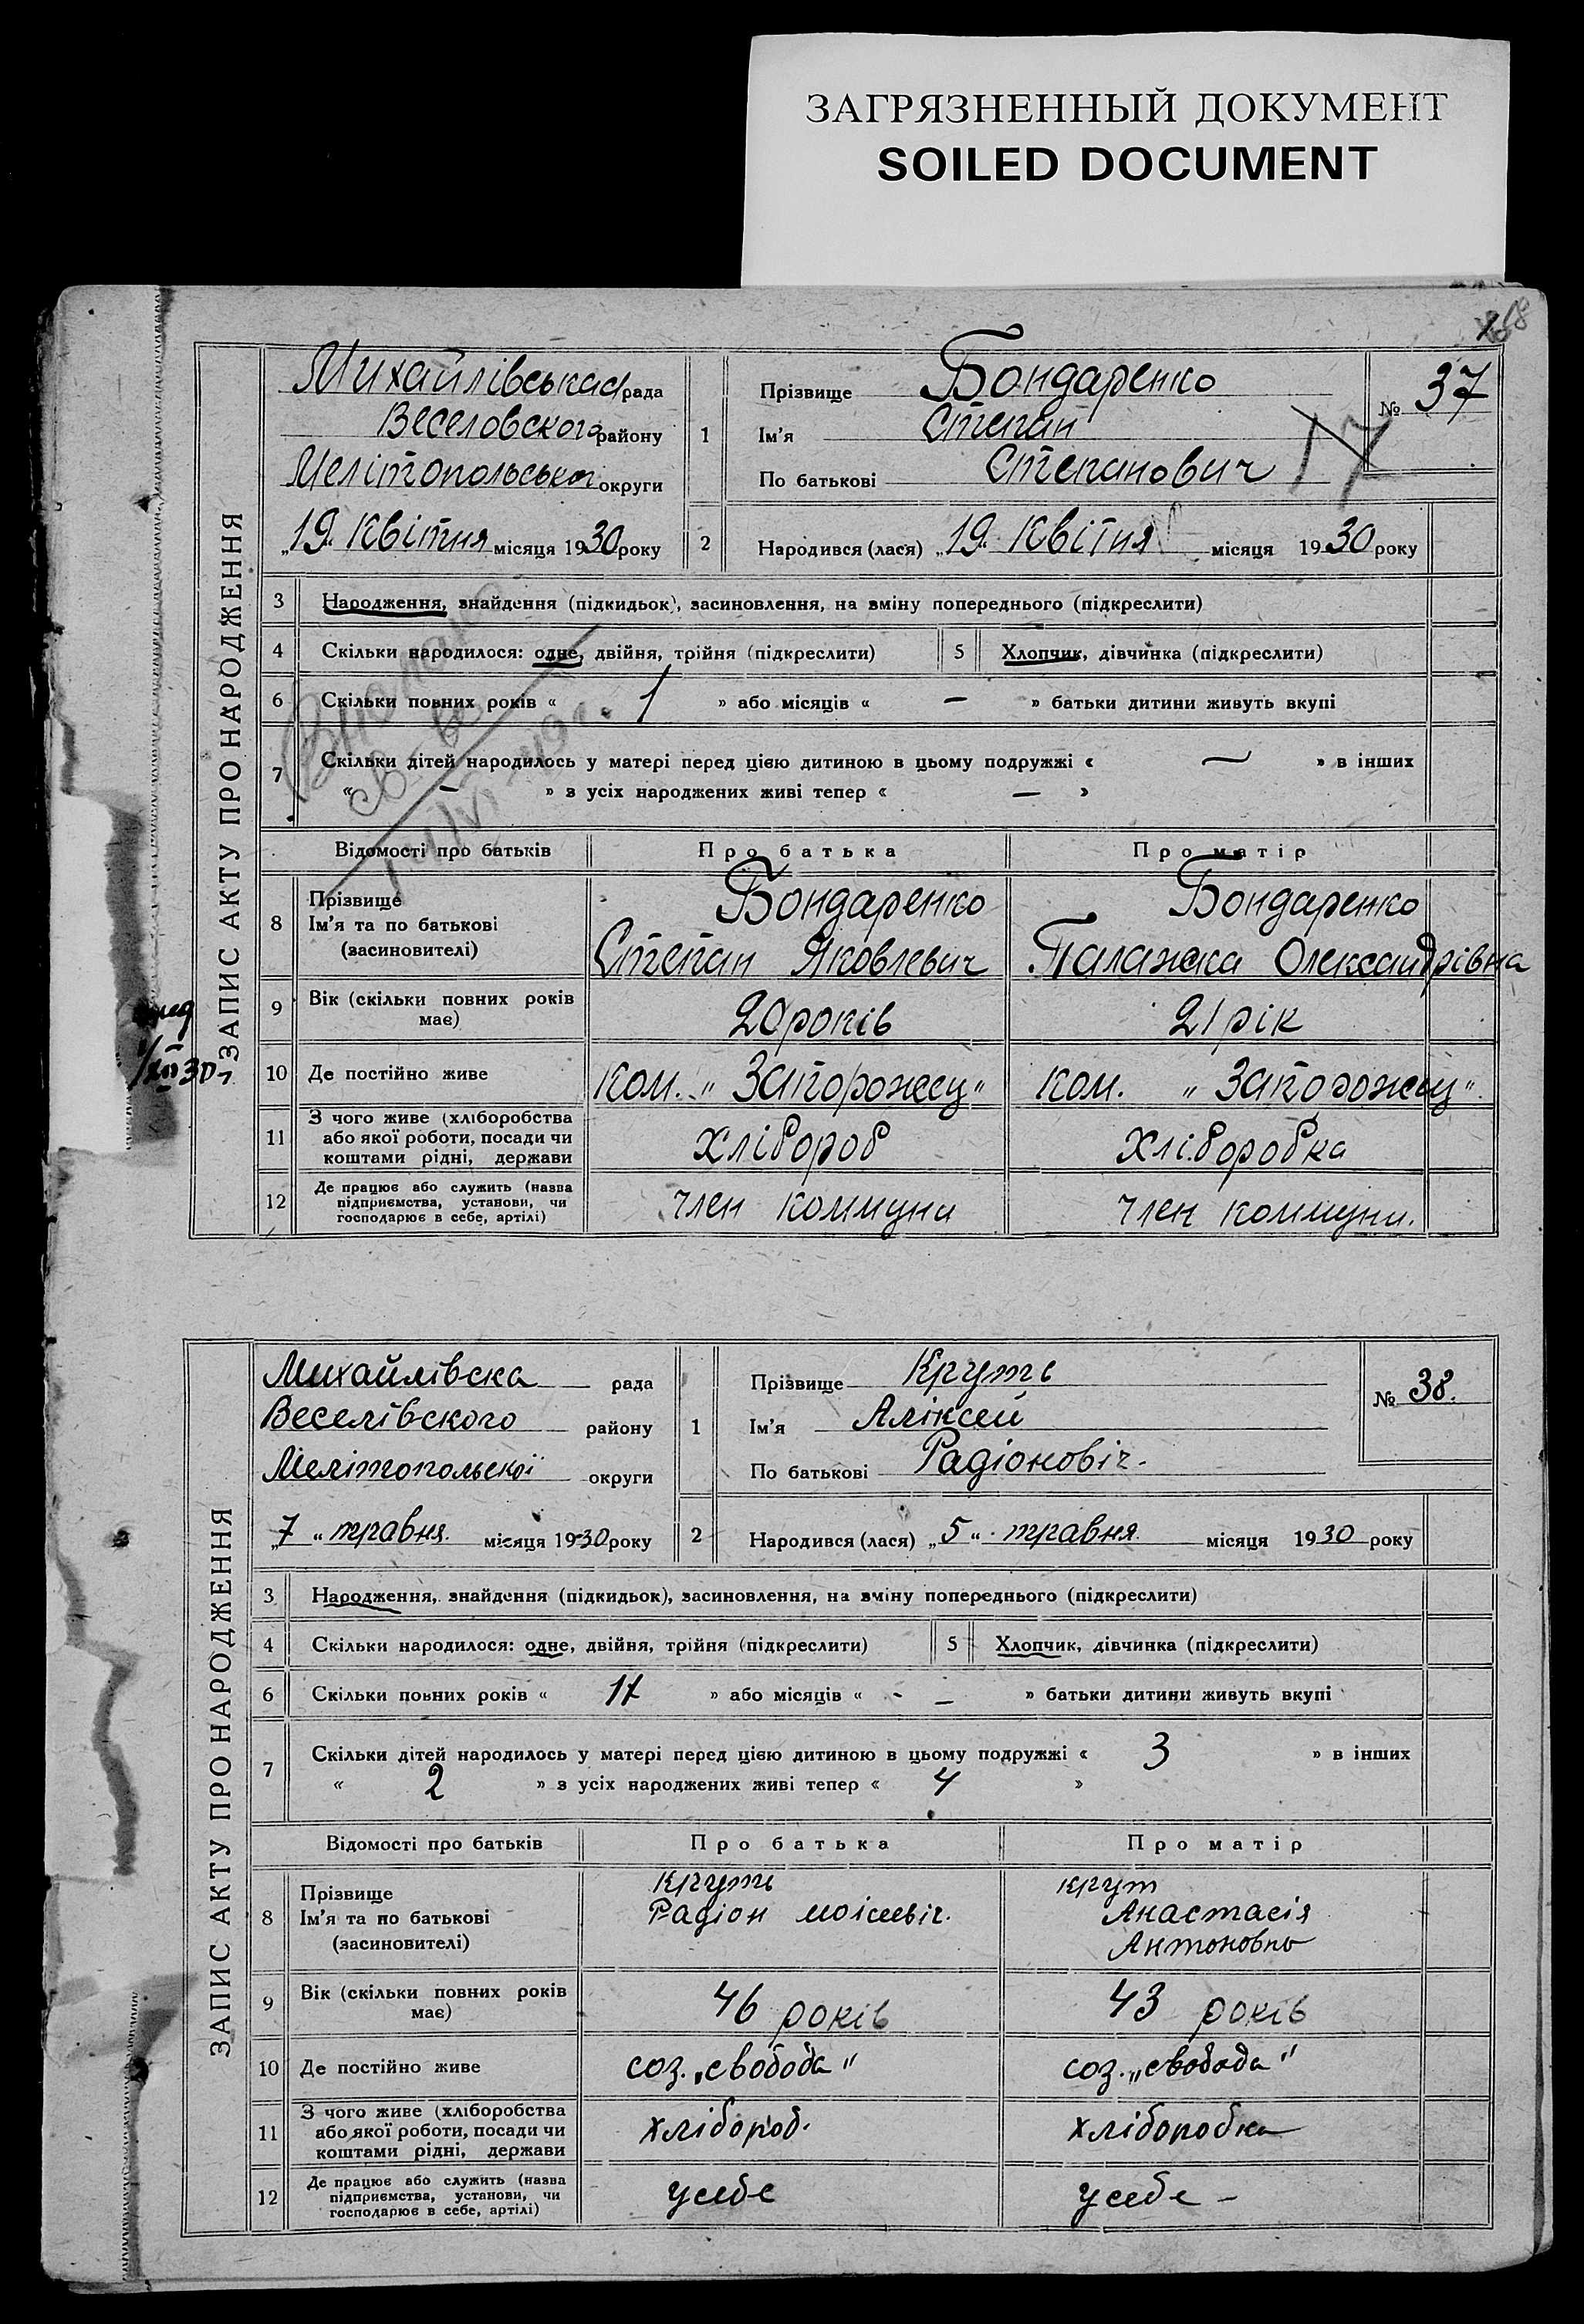 ЗАГРЯЗНЕННЫЙ ДОКУМЕНТ
SOILED DOCUMENT
ЗАПИС АКТУ ПРО НАРОДЖЕННЯ
Михайлівська рада
Веселовского району
Мелітопольської округи
„19“ Квітня місяця 1930 року
1 Прізвище Бондаренко
Ім'я Степан
По батькові Степанович
№ 37
17
2 Народився (лася) „19“ Квітня місяця 1930 року
3 Народження, знайдення (підкидьок), засиновлення, на зміну попереднього (підкреслити)
4 Скільки народилося: одне, двійня, трійня (підкреслити) 5 Хлопчик, дівчинка (підкреслити)
6 Скільки повних років « 1 » або місяців « — » батьки дитини живуть вкупі
7 Скільки дітей народилось у матері перед цією дитиною в цьому подружжі « — » в інших
« — » з усіх народжених живі тепер « — »
Відомості про батьків Про батька Про матір
8 Прізвище Бондаренко Бондаренко
Ім'я та по батькові
(засновителі) Степан Яковлевич Палажка Олександрівна
9 Вік (скільки повних років має) 20 років 21 рік
10 Де постійно живе ком. „Запорожец“ ком. „Запорожец“
11 З чого живе (хліборобства
або якої роботи, посади чи
коштами рідні, держави хлібороб хліборобка
12 Де працює або служить (назва
підприємства, установи, чи
господарює в себе, артілі) член коммуни член коммуни.
ЗАПИС АКТУ ПРО НАРОДЖЕННЯ
Михайлівска рада
Веселівского району
Мелітопольскої округи
„7“ травня. місяця 1930 року
1 Прізвище Круть
Ім'я Аліксей
По батькові Радіоновіч.
№ 38.
2 Народився (лася) „5“ травня місяця 1930 року
3 Народження, знайдення (підкидьок), засиновлення, на зміну попереднього (підкреслити)
4 Скільки народилося: одне, двійня, трійня (підкреслити) 5 Хлопчик, дівчинка (підкреслити)
6 Скільки повних років « 17 » або місяців « - — » батьки дитини живуть вкупі
7 Скільки дітей народилось у матері перед цією дитиною в цьому подружжі « 3 » в інших
« 2 » з усіх народжених живі тепер « 4 »
Відомості про батьків Про батька Про матір
8 Прізвище Круть крут
Ім'я та по батькові Радіон моісеевіч. Анастасія
(засиновителі) Антоновно
9 Вік (скільки повних років має) 46 років 43 років
10 Де постійно живе соз. „свобода“ соз. „свобода“
11 З чого живе (хліборобства
або якої роботи, посади чи
коштами рідні, держави хлібороб. хліборобка
12 Де працює або служить (назва
підприємства, установи, чи
господарює в себе, артілі) усебе усебе -